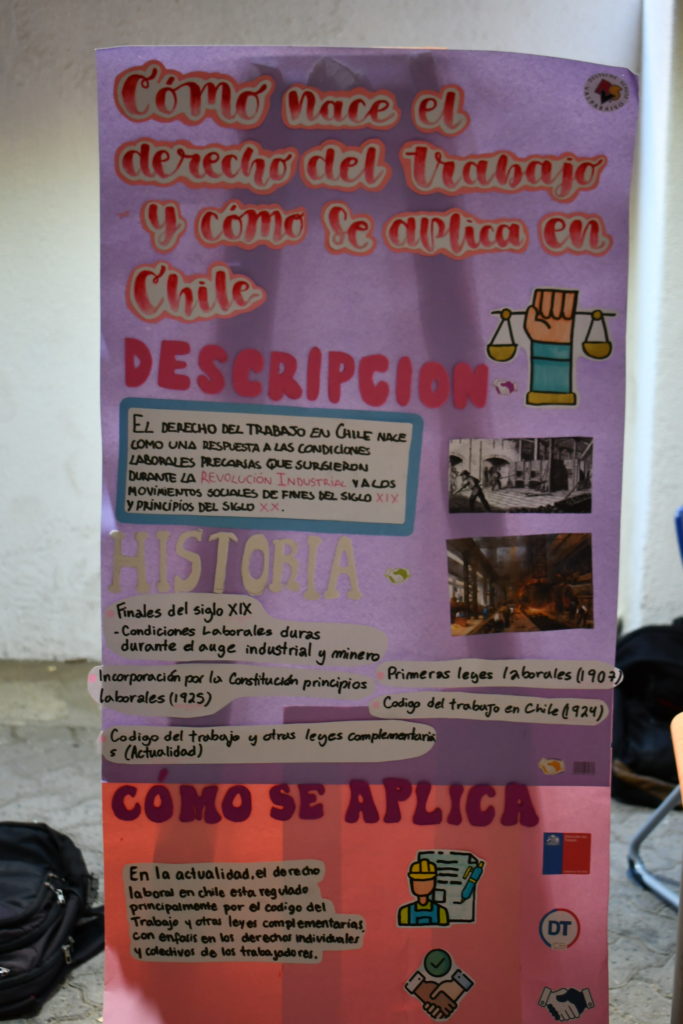 Cómo nace el
derecho del trabajo
y cómo se aplica en
Chile
DESCRIPCION
EL DERECHO DEL TRABAJO EN CHILE NACE
COMO UNA RESPUESTA A LAS CONDICIONES
LABORALES PRECARIAS QUE SURGIERON
DURANTE LA REVOLUCIÓN INDUSTRIAL Y A LOS
MOVIMIENTOS SOCIALES DE FINES DEL SIGLO XIX
Y PRINCIPIOS DEL SIGLO XX.
HISTORIA
Finales del siglo XIX
-Condiciones Laborales duras
durante el auge industrial y minero
Incorporación por la Constitución principios
laborales (1925)
Primeras leyes laborales (1907)
Codigo del trabajo en Chile (1924)
Codigo del trabajo y otras leyes complementaria
s (Actualidad)
CÓMO SE APLICA
En la actualidad, el derecho
laboral en chile esta regulado
principalmente por el codigo del
Trabajo y otras leyes complementarias,
con enfasis en los derechos individuales
y colectivos de los trabajadores.
DT